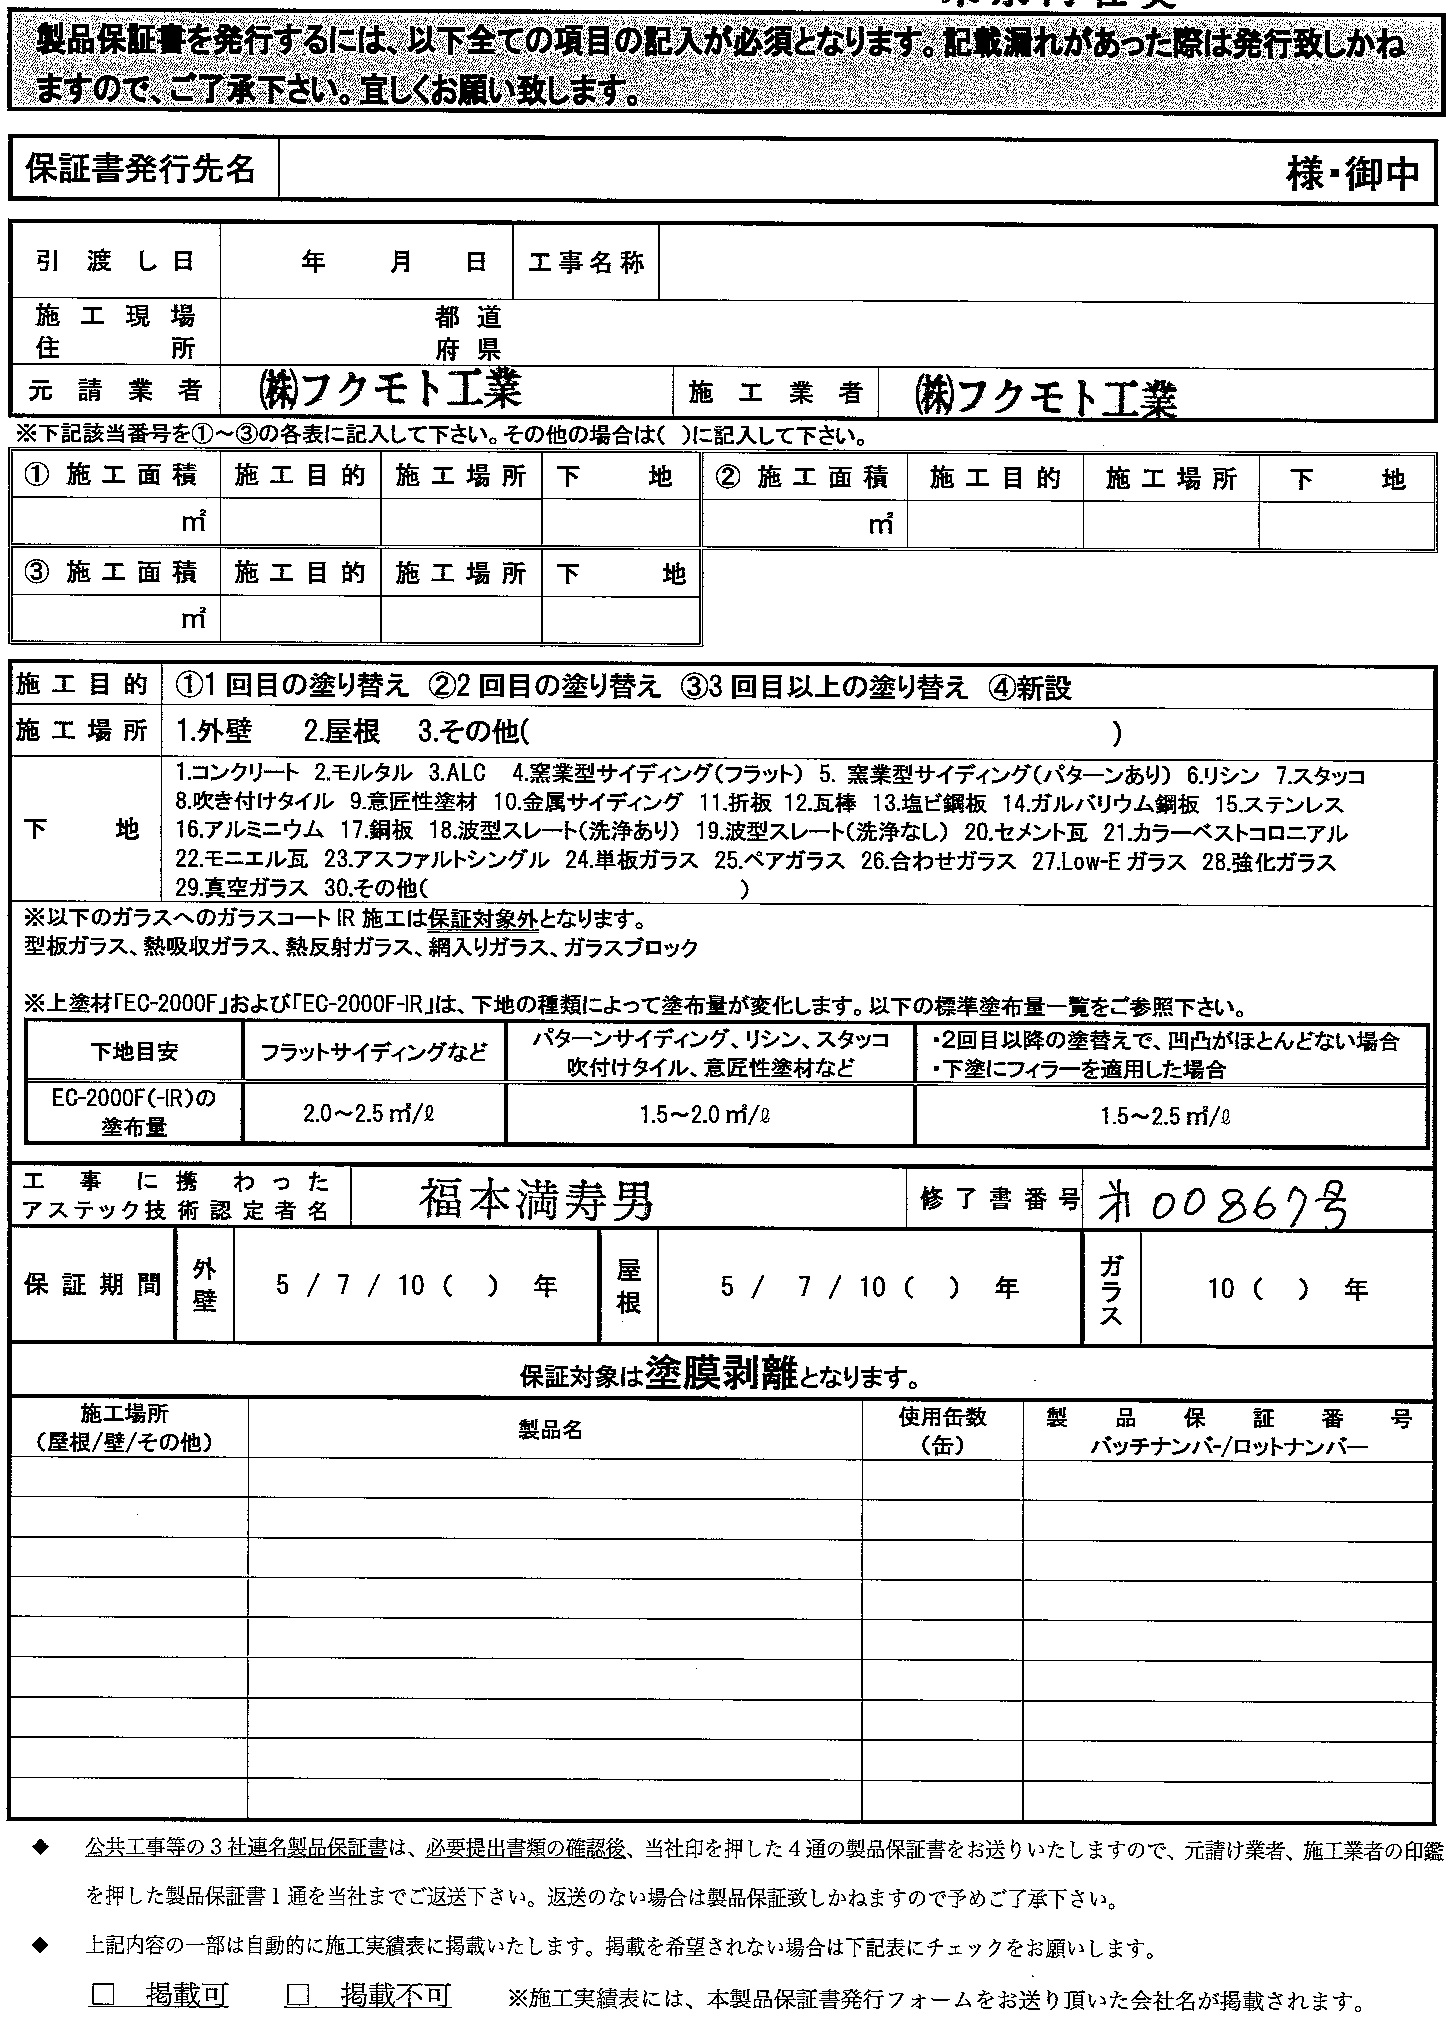 製品保証書を発行するには、以下全ての項目の記入が必須となります。記載漏れがあった際は発行致しかね
ますので、ご了承下さい。宜しくお願い致します。
保証書発行先名 様・御中
引渡し日 年 月 日 工事名称
施工現場 都道
住所 府県
元請業者 ㈱フクモト工業 施工業者 ㈱フクモト工業
※下記該当番号を①～③の各表に記入して下さい。その他の場合は( )に記入して下さい。
① 施工面積 施工目的 施工場所 下地 ② 施工面積 施工目的 施工場所 下地
㎡ ㎡
③ 施工面積 施工目的 施工場所 下地
㎡
施工目的 ①1回目の塗り替え ②2回目の塗り替え ③3回目以上の塗り替え ④新設
施工場所 1.外壁 2.屋根 3.その他( )
下地
1.コンクリート 2.モルタル 3.ALC 4.窯業型サイディング(フラット) 5. 窯業型サイディング(パターンあり) 6.リシン 7.スタッコ
8.吹き付けタイル 9.意匠性塗材 10.金属サイディング 11.折板 12.瓦棒 13.塩ビ鋼板 14.ガルバリウム鋼板 15.ステンレス
16.アルミニウム 17.銅板 18.波型スレート(洗浄あり) 19.波型スレート(洗浄なし) 20.セメント瓦 21.カラーベストコロニアル
22.モニエル瓦 23.アスファルトシングル 24.単板ガラス 25.ペアガラス 26.合わせガラス 27.Low-Eガラス 28.強化ガラス
29.真空ガラス 30.その他( )
※以下のガラスへのガラスコートIR施工は保証対象外となります。
型板ガラス、熱吸収ガラス、熱反射ガラス、網入りガラス、ガラスブロック
※上塗材｢EC-2000F｣および｢EC-2000F-IR｣は、下地の種類によって塗布量が変化します。以下の標準塗布量一覧をご参照下さい。
下地目安 フラットサイディングなど パターンサイディング、リシン、スタッコ ・2回目以降の塗替えで、凹凸がほとんどない場合
吹付けタイル、意匠性塗材など ・下塗にフィラーを適用した場合
EC-2000F(-IR)の
塗布量 2.0～2.5㎡/ℓ 1.5～2.0㎡/ℓ 1.5～2.5㎡/ℓ
工事に携わった
アステック技術認定者名 福本満寿男 修了書番号 第00867号
保証期間 外壁 5 / 7 / 10 ( ) 年 屋根 5 / 7 / 10 ( ) 年 ガラス 10 ( ) 年
保証対象は塗膜剥離となります。
施工場所 製品名 使用缶数 製品保証番号
(屋根/壁/その他) (缶) バッチナンバー/ロットナンバー
◆ 公共工事等の3社連名製品保証書は、必要提出書類の確認後、当社印を押した4通の製品保証書をお送りいたしますので、元請け業者、施工業者の印鑑
を押した製品保証書1通を当社までご返送下さい。返送のない場合は製品保証致しかねますので予めご了承下さい。
◆ 上記内容の一部は自動的に施工実績表に掲載いたします。掲載を希望されない場合は下記表にチェックをお願いします。
□ 掲載可 □ 掲載不可 ※施工実績表には、本製品保証書発行フォームをお送り頂いた会社名が掲載されます。